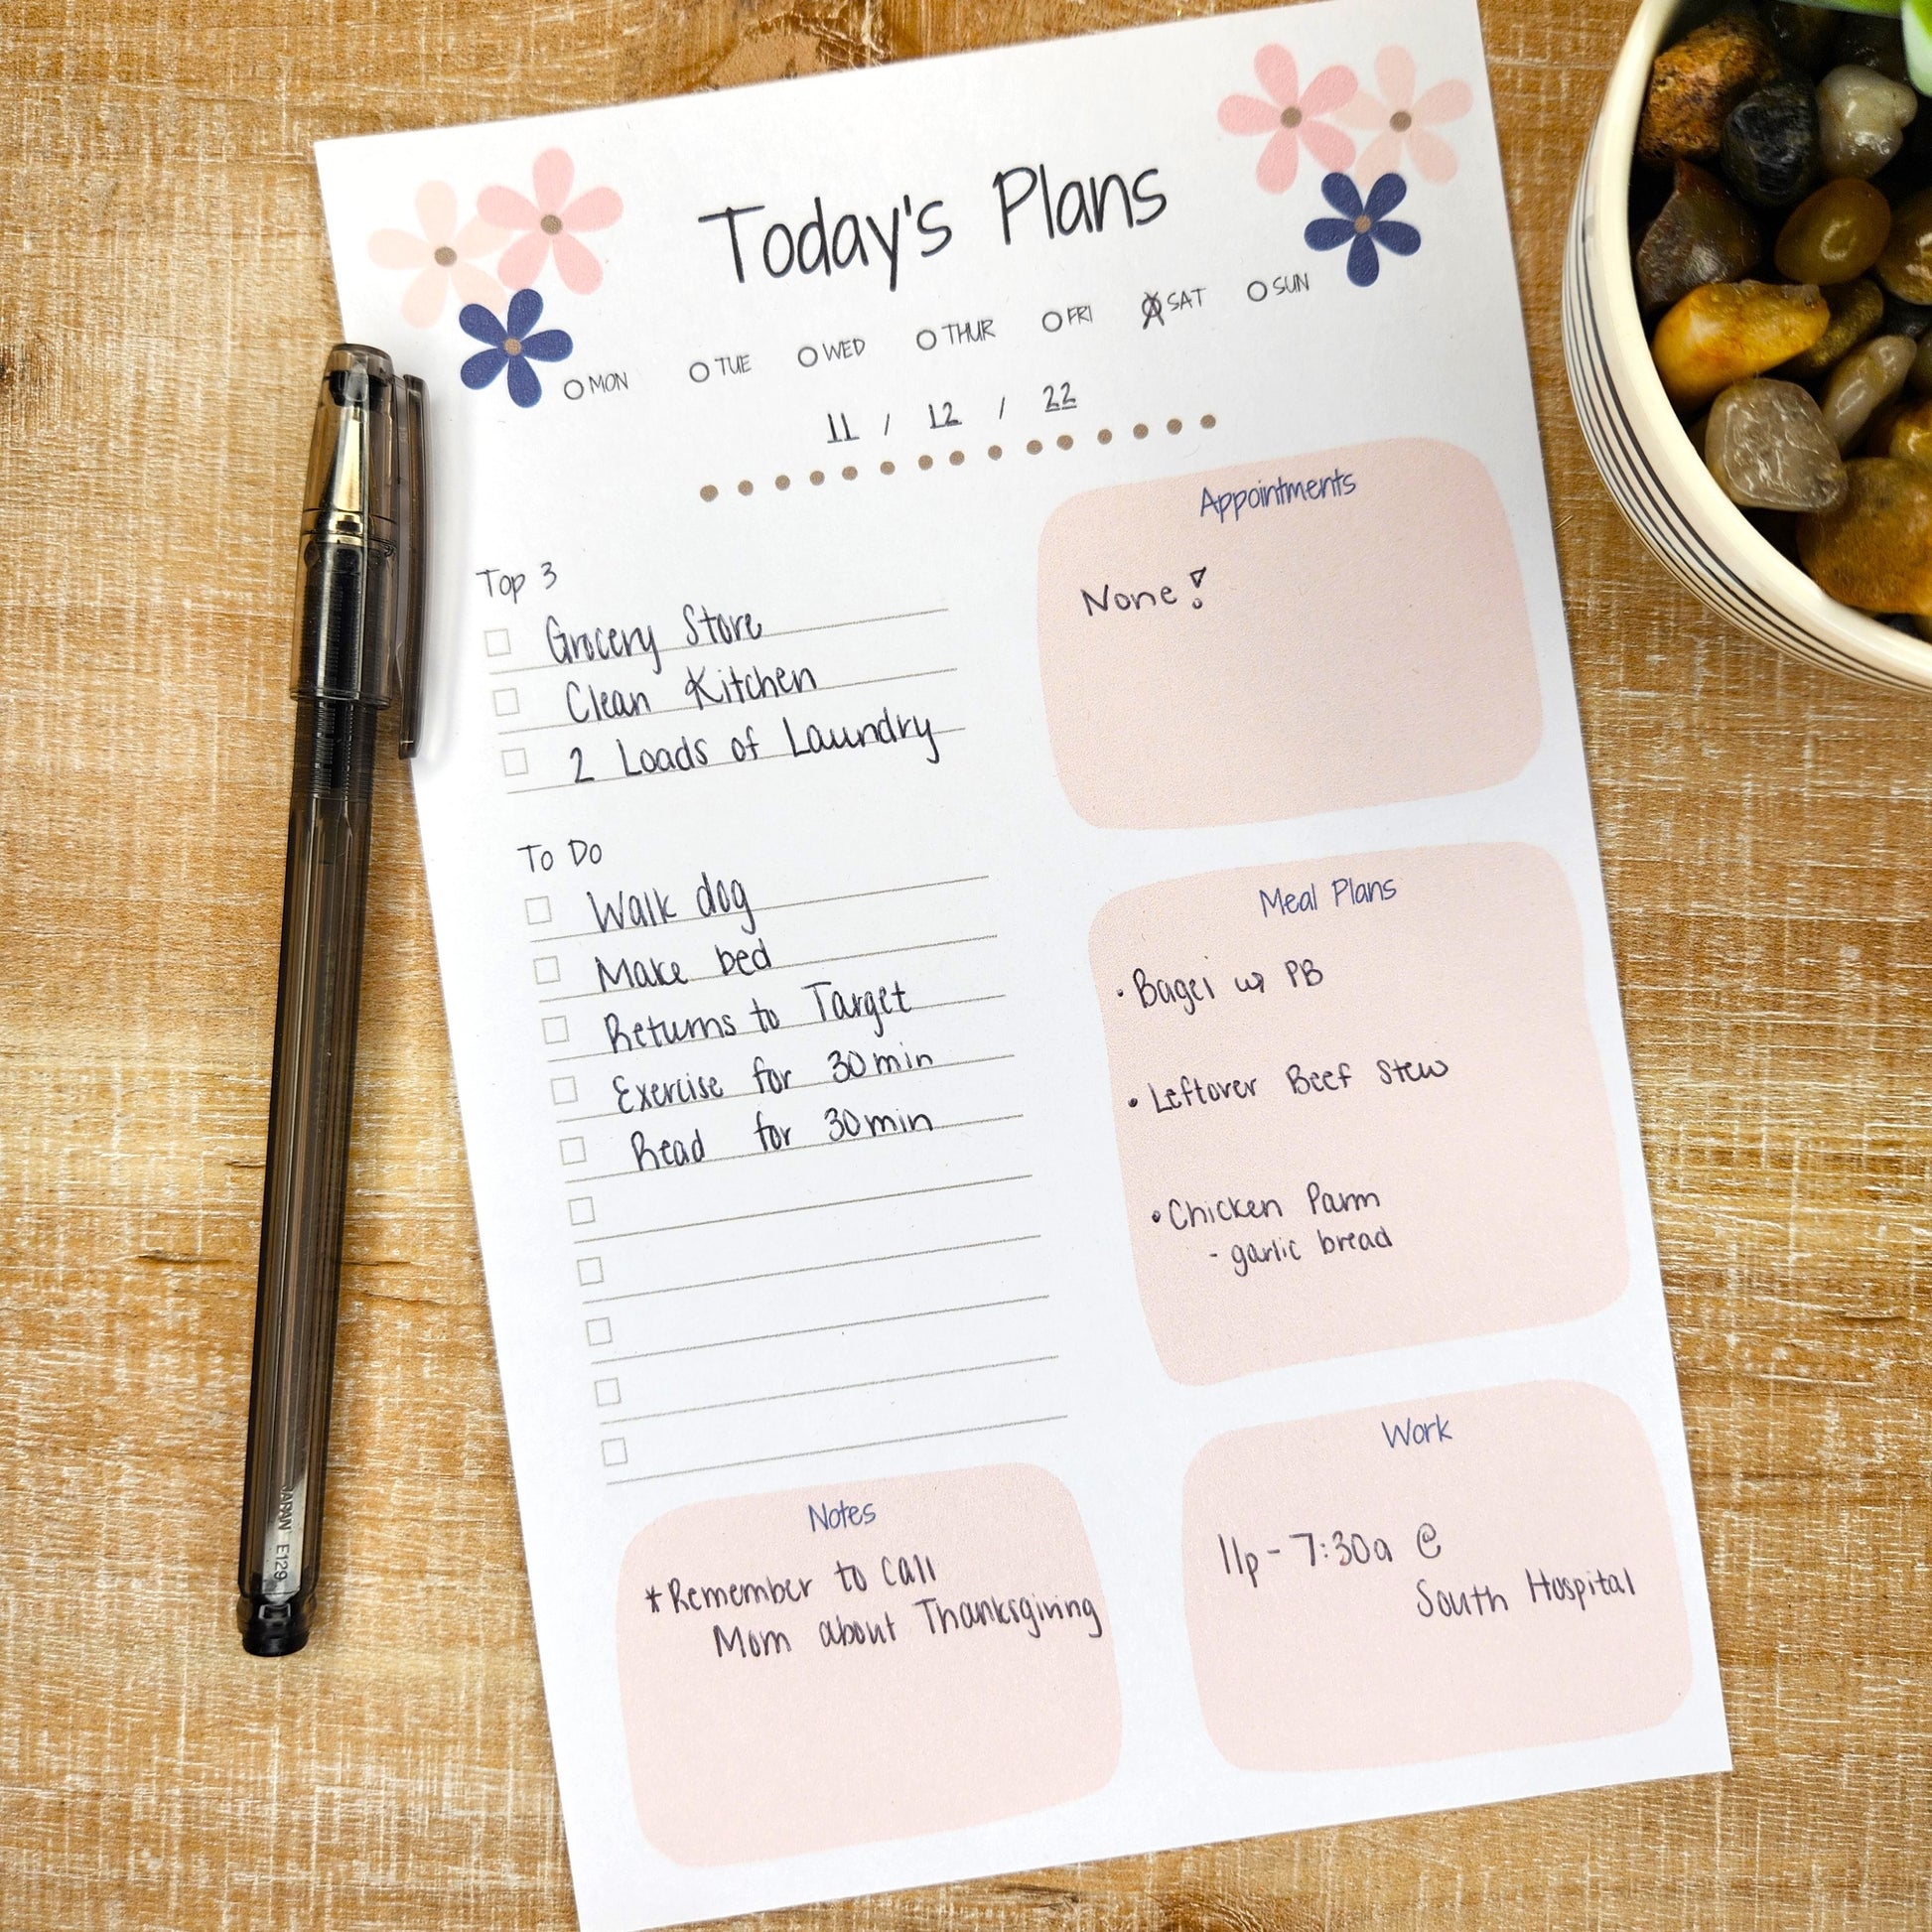 Today's Plans
MON TUE WED THUR FRI SAT SUN
11 / 12 / 22
Top 3
Grocery Store
Clean Kitchen
2 Loads of Laundry
To Do
Walk dog
Make bed
Returns to Target
Exercise for 30 min
Read for 30 min
Appointments
None!
Meal Plans
• Bagel w PB
• Leftover Beef Stew
• Chicken Parm
- garlic bread
Notes
* Remember to call
Mom about Thanksgiving
Work
11p - 7:30a @
South Hospital
JAPAN E129